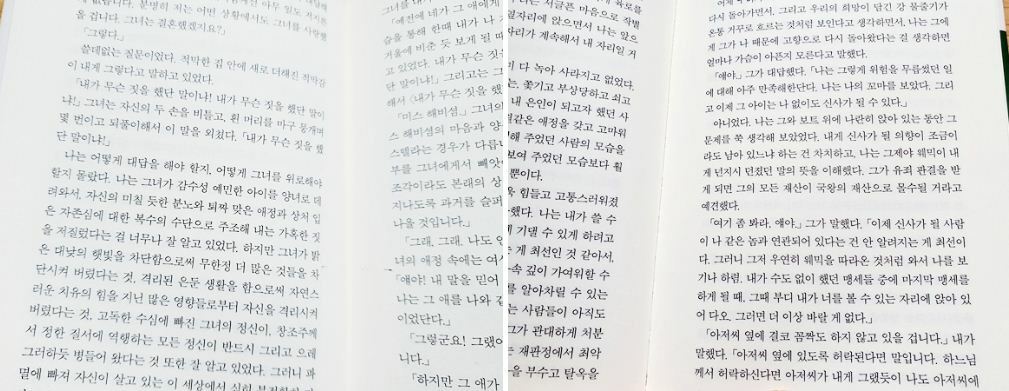 「그렇다.」
쓸데없는 질문이었다. 적막한 집 안에 새로 더해진 적막감
이 내게 그렇다고 말하고 있었다.
「내가 무슨 짓을 했단 말이냐! 내가 무슨 짓을 했단 말이
냐!」 그녀는 자신의 두 손을 비틀고, 흰 머리를 마구 뭉개며
몇 번이고 되풀이해서 이 말을 외쳤다. 「내가 무슨 짓을 했
단 말이냐!」
나는 어떻게 대답을 해야 할지, 어떻게 그녀를 위로해야
할지 몰랐다. 나는 그녀가 감수성 예민한 아이를 양녀로 데
려와서, 자신의 미칠 듯한 분노와 퇴짜 맞은 애정과 상처 입
은 자존심에 대한 복수의 수단으로 주조해 내는 가혹한 짓
을 저질렀다는 걸 너무나 잘 알고 있었다. 하지만 그녀가 밝
은 대낮의 햇빛을 차단함으로써 무한정 더 많은 것들을 차
단시켜 버렸다는 것, 격리된 은둔 생활을 함으로써 자연스
러운 치유의 힘을 지닌 많은 영향들로부터 자신을 격리시켜
버렸다는 것, 고독한 수심에 빠진 그녀의 정신이, 창조주께
서 정한 질서에 역행하는 모든 정신이 반드시 그리고 으레
그러하듯 병들어 왔다는 것 또한 잘 알고 있었다. 그러니 파
멸에 빠져 자신이 살고 있는 이 세상에서
「예전에 네가 그 애에게
습을 통해 한때 내가 나
거울에 비춘 듯 보게 될 때
고 있었다. 내가 무슨 짓을
단 말이냐!」 그리고는 그
해서 〈내가 무슨 짓을
「미스 해비셤.」 그녀의
의 마음과 양
스텔라는 경우가 다릅니
부를 그녀에게서 빼앗
조각이라도 본래의 상
지나도록 과거를 슬퍼
나을 것입니다.」
「그래, 그래, 나도 안
녀의 애정 속에는 여
「얘야! 내 말을 믿어
나는 그 애를 나와 같
이었단다.」
「그렇군요! 그랬어
니다.」
「하지만 그 애가
는 서글픈 마음으로 작별
길자리에 앉으면서 나는 앞으
자리가 계속해서 내 자리일 거
미 다 녹아 사라지고 없었다.
는, 쫓기고 부상당하고 쇠고
내 은인이 되고자 했던 사
결같은 애정을 갖고 고마워
해 주었던 사람의 모습을
보여 주었던 모습보다 훨
뿐이다.
욱 힘들고 고통스러워졌
했다. 나는 내가 쓸 수
기댈 수 있게 하려고
는 게 최선인 것 같아서,
속 깊이 가여워할 수
를 알아차릴 수 있는
는 사람들이 아직도
그가 관대하게 처분
는 재판정에서 최악
을 부수고 탈옥을
다시 돌아가면서, 그리고 우리의 희망이 담긴 강 물줄기가
온통 거꾸로 흐르는 것처럼 보인다고 생각하면서, 나는 그에
게 그가 나 때문에 고향으로 다시 돌아왔다는 걸 생각하면
얼마나 가슴이 아픈지 모른다고 말했다.
「얘야.」 그가 대답했다. 「나는 그렇게 위험을 무릅썼던 일
에 대해 아주 만족해한단다. 나는 나의 꼬마를 보았다. 그리
고 이제 그 아이는 나 없이도 신사가 될 수 있다.」
아니었다. 나는 그와 보트 위에 나란히 앉아 있는 동안 그
문제를 쭉 생각해 보았었다. 내게 신사가 될 의향이 조금이
라도 남아 있느냐 하는 건 차치하고, 나는 그제야 웨믹이 내
게 던지시 던졌던 말의 뜻을 이해했다. 그가 유죄 판결을 받
게 되면 그의 모든 재산이 국왕의 재산으로 몰수될 거라고
예견했다.
「여기 좀 봐라, 얘야.」 그가 말했다. 「이제 신사가 될 사람
이 나 같은 놈과 연관되어 있다는 건 안 알려지는 게 최선이
다. 그러니 그저 우연히 웨믹을 따라온 것처럼 와서 나를 보
기나 하렴. 내가 수도 없이 했던 맹세들 중에 마지막 맹세를
하게 될 때, 그때 부디 내가 너를 볼 수 있는 자리에 앉아 있
어 다오. 그러면 더 이상 바랄 게 없다.」
「아저씨 옆에 결코 꼼짝도 하지 않고 있을 겁니다.」 내가
말했다. 「아저씨 옆에 있도록 허락된다면 말입니다. 하느님
께서 허락하신다면 아저씨가 내게 그랬듯이 나도 아저씨에